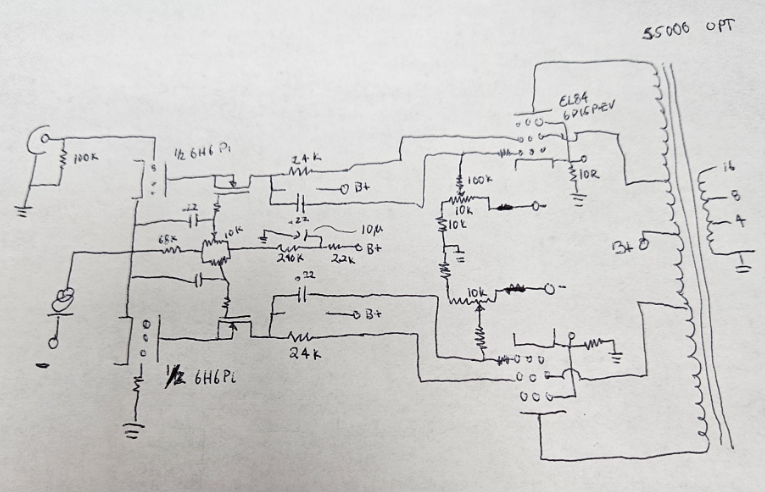 5500G OPT
EL84
6П15П-EV
100K
1/2 6H6Pi
24K
B+
.22
10R
100K
10K
10K
16
8
4
.22
10K
10µ
68K
240K
22K
B+
B+
10K
.22
B+
24K
1/2 6H6Pi